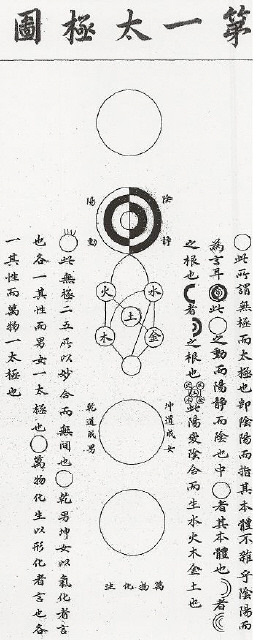 第一太極圖
○此所謂無極而太極也即陰陽而指其本體不雜乎陰陽而
為言耳此○之動而陽靜而陰也中○者其本體也者
之根也者之根也此陽變陰合而生水火木金土也
陰靜
陽動
水
火
土
金
木
坤道成女
乾道成男
萬物化生
○此無極二五所以妙合而無間也○乾男坤女以氣化者言
也各一其性而男女一太極也○萬物化生以形化者言也各
一其性而萬物一太極也